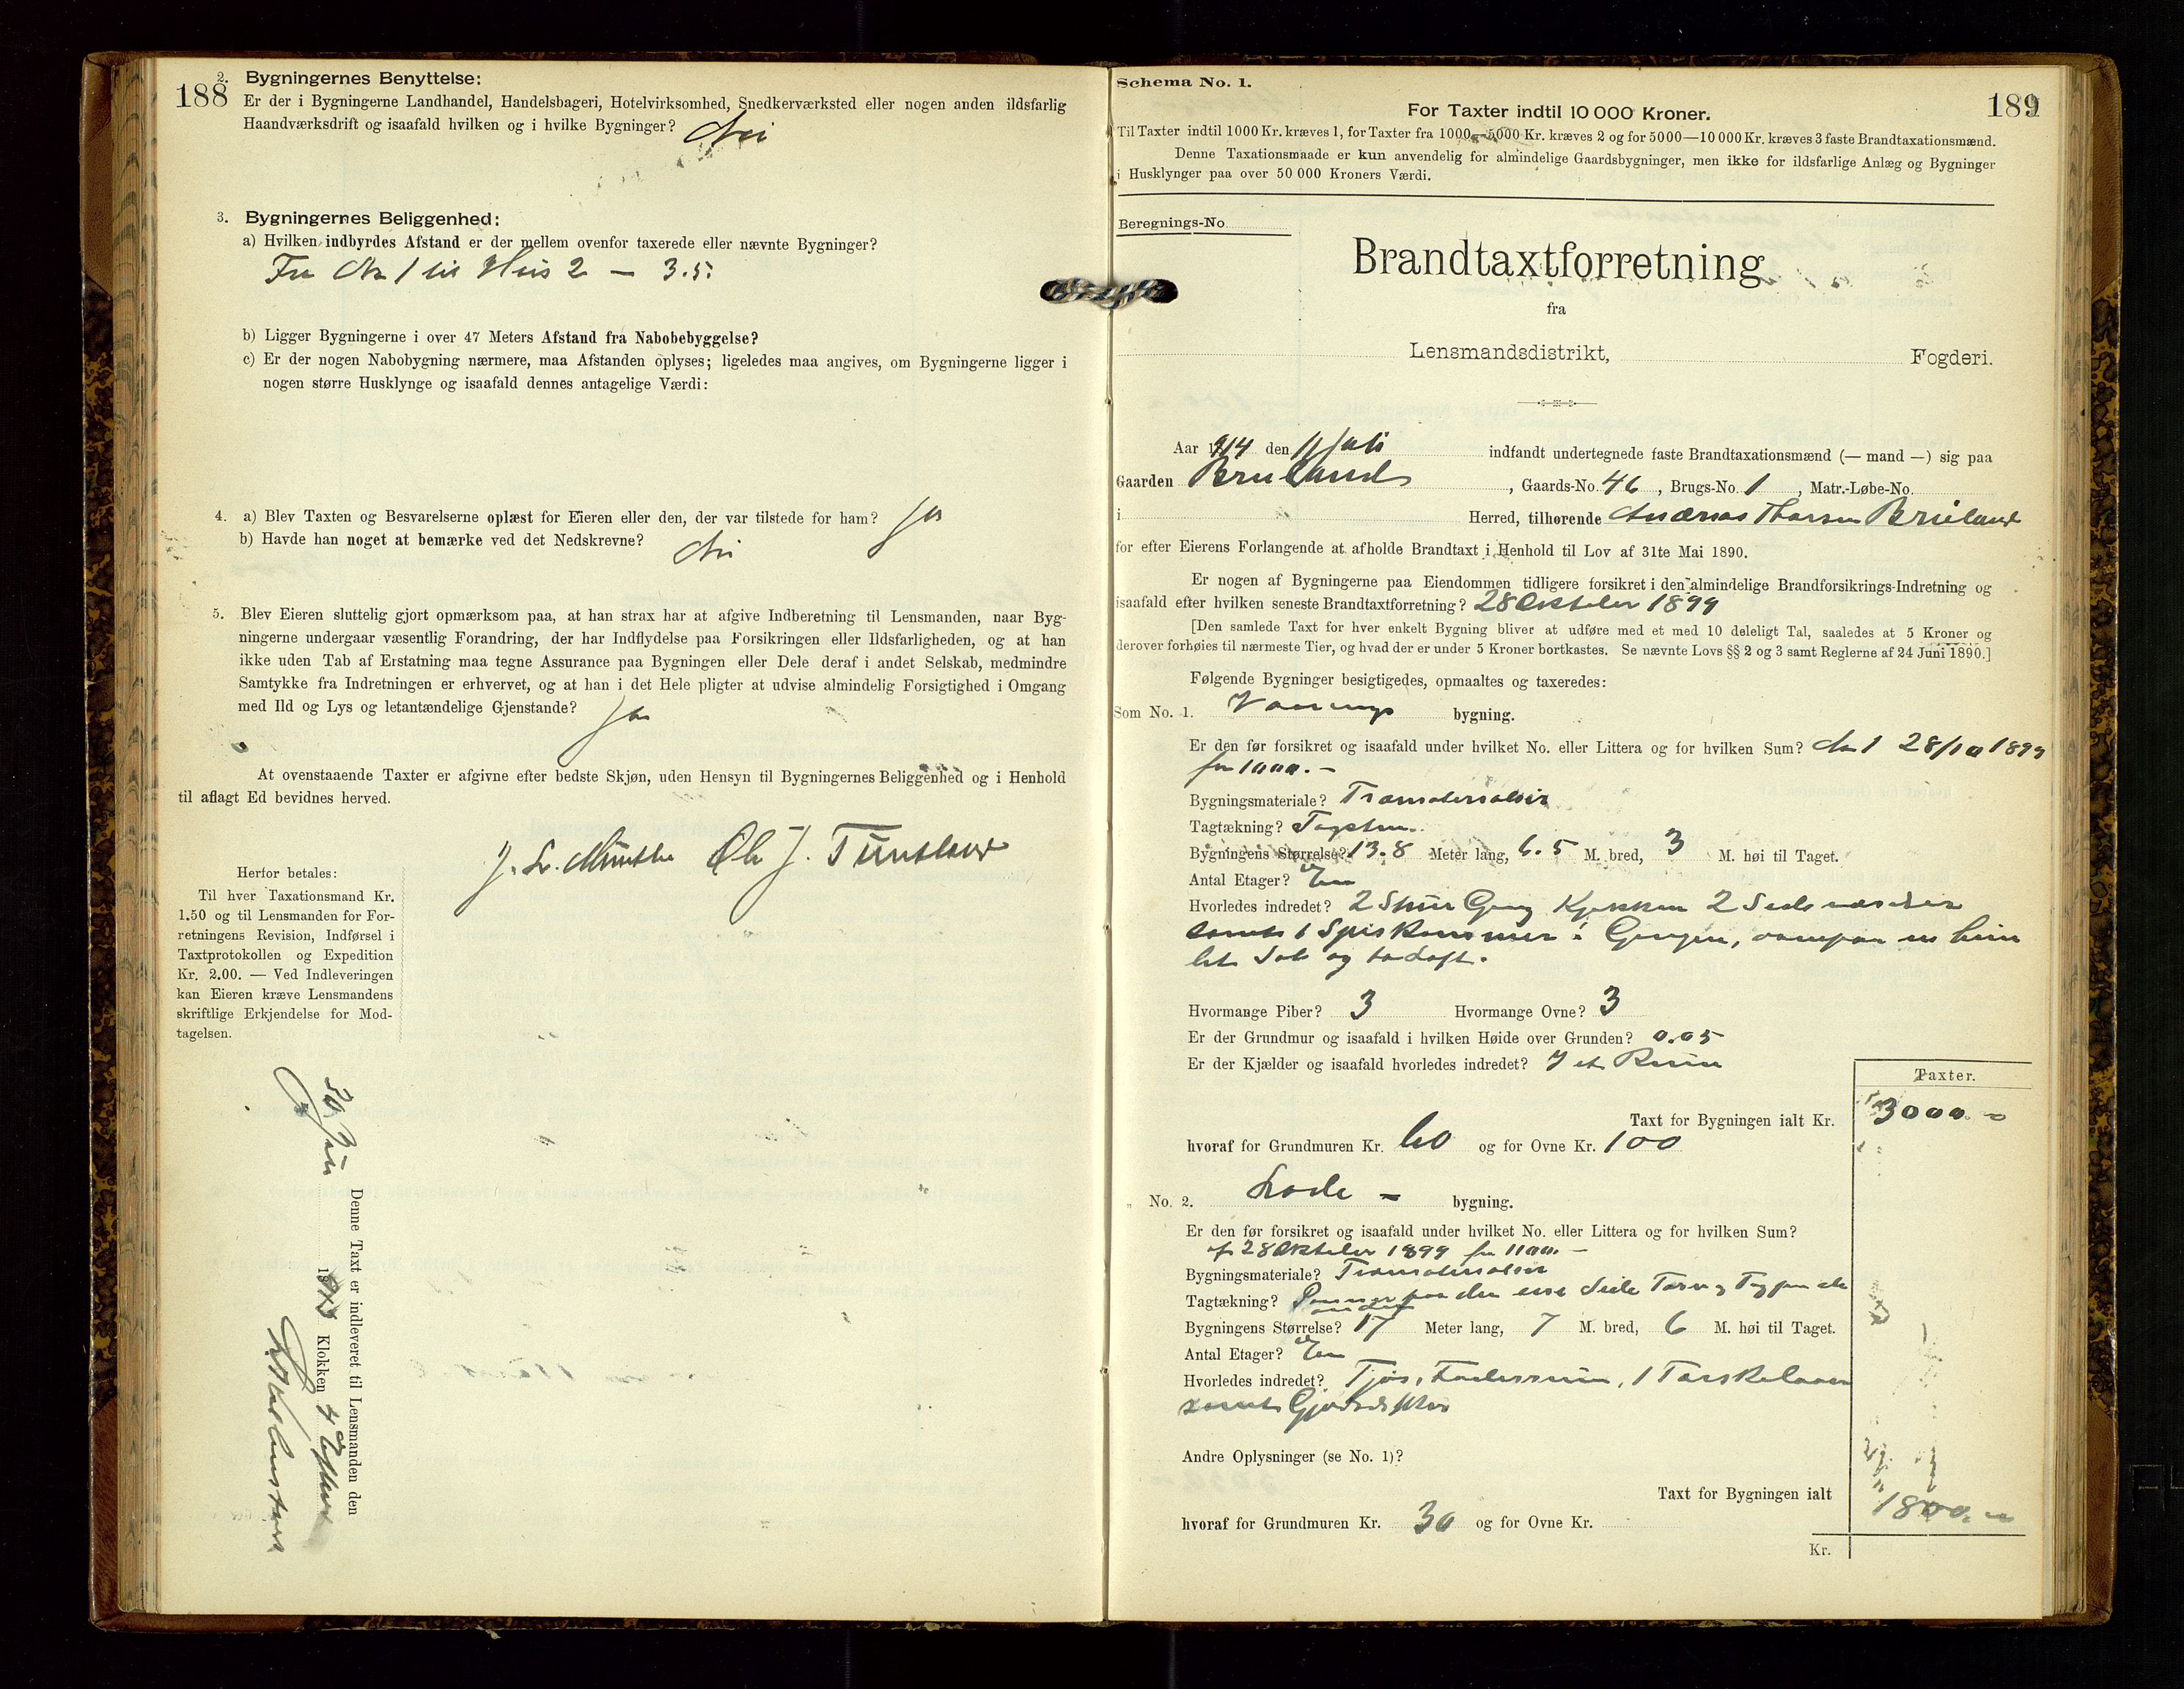 188
2. Bygningernes Benyttelse:
Er der i Bygningerne Landhandel, Handelsbageri, Hotelvirksomhed, Snedkerværksted eller nogen anden ildsfarlig
Haandværksdrift og isaafald hvilken og i hvilke Bygninger? Nei
3. Bygningernes Beliggenhed:
a) Hvilken indbyrdes Afstand er der mellem ovenfor taxerede eller nævnte Bygninger?
Fra No 1 til Hus 2 — 3.5.
b) Ligger Bygningerne i over 47 Meters Afstand fra Nabobebyggelse?
c) Er der nogen Nabobygning nærmere, maa Afstanden oplyses; ligeledes maa angives, om Bygningerne ligger i
nogen større Husklynge og isaafald dennes antagelige Værdi:
4. a) Blev Taxten og Besvarelserne oplæst for Eieren eller den, der var tilstede for ham? Ja
b) Havde han noget at bemærke ved det Nedskrevne? Nei
5. Blev Eieren sluttelig gjort opmærksom paa, at han strax har at afgive Indberetning til Lensmanden, naar Byg-
ningerne undergaar væsentlig Forandring, der har Indflydelse paa Forsikringen eller Ildsfarligheden, og at han
ikke uden Tab af Erstatning maa tegne Assurance paa Bygningen eller Dele deraf i andet Selskab, medmindre
Samtykke fra Indretningen er erhvervet, og at han i det Hele pligter at udvise almindelig Forsigtighed i Omgang
med Ild og Lys og letantændelige Gjenstande? Ja
At ovenstaaende Taxter er afgivne efter bedste Skjøn, uden Hensyn til Bygningernes Beliggenhed og i Henhold
til aflagt Ed bevidnes herved.
J. L. Munthe Ole J. Tuntland
Herfor betales:
Til hver Taxationsmand Kr.
1.50 og til Lensmanden for For-
retningens Revision, Indførsel i
Taxtprotokollen og Expedition
Kr. 2.00. — Ved Indleveringen
kan Eieren kræve Lensmandens
skriftlige Erkjendelse for Mod-
tagelsen.
Denne Taxt er indleveret til Lensmanden den
30 Juli 19 Klokken 4
Schema No. 1.
189
For Taxter indtil 10 000 Kroner.
Til Taxter indtil 1000 Kr. kræves 1, for Taxter fra 1000—5000 Kr. kræves 2 og for 5000—10 000 Kr. kræves 3 faste Brandtaxationsmænd.
Denne Taxationsmaade er kun anvendelig for almindelige Gaardsbygninger, men ikke for ildsfarlige Anlæg og Bygninger
i Husklynger paa over 50 000 Kroners Værdi.
Beregnings-No.
Brandtaxtforretning
fra
Lensmandsdistrikt, Fogderi.
Aar 1914 den 11 Juli indfandt undertegnede faste Brandtaxationsmænd (— mand —) sig paa
Gaarden Brueland, Gaards-No. 46, Brugs-No. 1, Matr.-Løbe-No.
i Herred, tilhørende Andreas Thorsen Brueland
for efter Eierens Forlangende at afholde Brandtaxt i Henhold til Lov af 31te Mai 1890.
Er nogen af Bygningerne paa Eiendommen tidligere forsikret i den almindelige Brandforsikrings-Indretning og
isaafald efter hvilken seneste Brandtaxtforretning? 28 Oktober 1899
[Den samlede Taxt for hver enkelt Bygning bliver at udføre med et med 10 deleligt Tal, saaledes at 5 Kroner og
derover forhøies til nærmeste Tier, og hvad der er under 5 Kroner bortkastes. Se nævnte Lovs §§ 2 og 3 samt Reglerne af 24 Juni 1890.]
Følgende Bygninger besigtigedes, opmaaltes og taxeredes:
Som No. 1. Vaanings bygning.
Er den før forsikret og isaafald under hvilket No. eller Littera og for hvilken Sum? No 1 28/10 1899
for 1000.-
Bygningsmateriale? Træmaterialier
Tagtækning? Tagsten
Bygningens Størrelse? 13.8 Meter lang, 6.5 M. bred, 3 M. høi til Taget.
Antal Etager? En
Hvorledes indredet? 2 Stuer Gang Kjøkken 2
samt 1 Spiskammer i Gangen,
og
Hvormange Piber? 3 Hvormange Ovne? 3
Er der Grundmur og isaafald i hvilken Høide over Grunden? 0.05
Er der Kjælder og isaafald hvorledes indredet? I et Rum
Taxter.
Taxt for Bygningen ialt Kr. 3000.-
hvoraf for Grundmuren Kr. 60 og for Ovne Kr. 100
„ No. 2. Lade - bygning.
Er den før forsikret og isaafald under hvilket No. eller Littera og for hvilken Sum?
af 28 Oktober 1899 for 1100.-
Bygningsmateriale? Træmaterialier
Tagtækning? paa den ene Side Torv
Bygningens Størrelse? 17 Meter lang, 7 M. bred, 6 M. høi til Taget.
Antal Etager? En
Hvorledes indredet? Fjøs, Foderrum, 1 Tærskelaave
samt
Andre Oplysninger (se No. 1)?
Taxt for Bygningen ialt 1800.-
hvoraf for Grundmuren Kr. 30 og for Ovne Kr.
Kr.